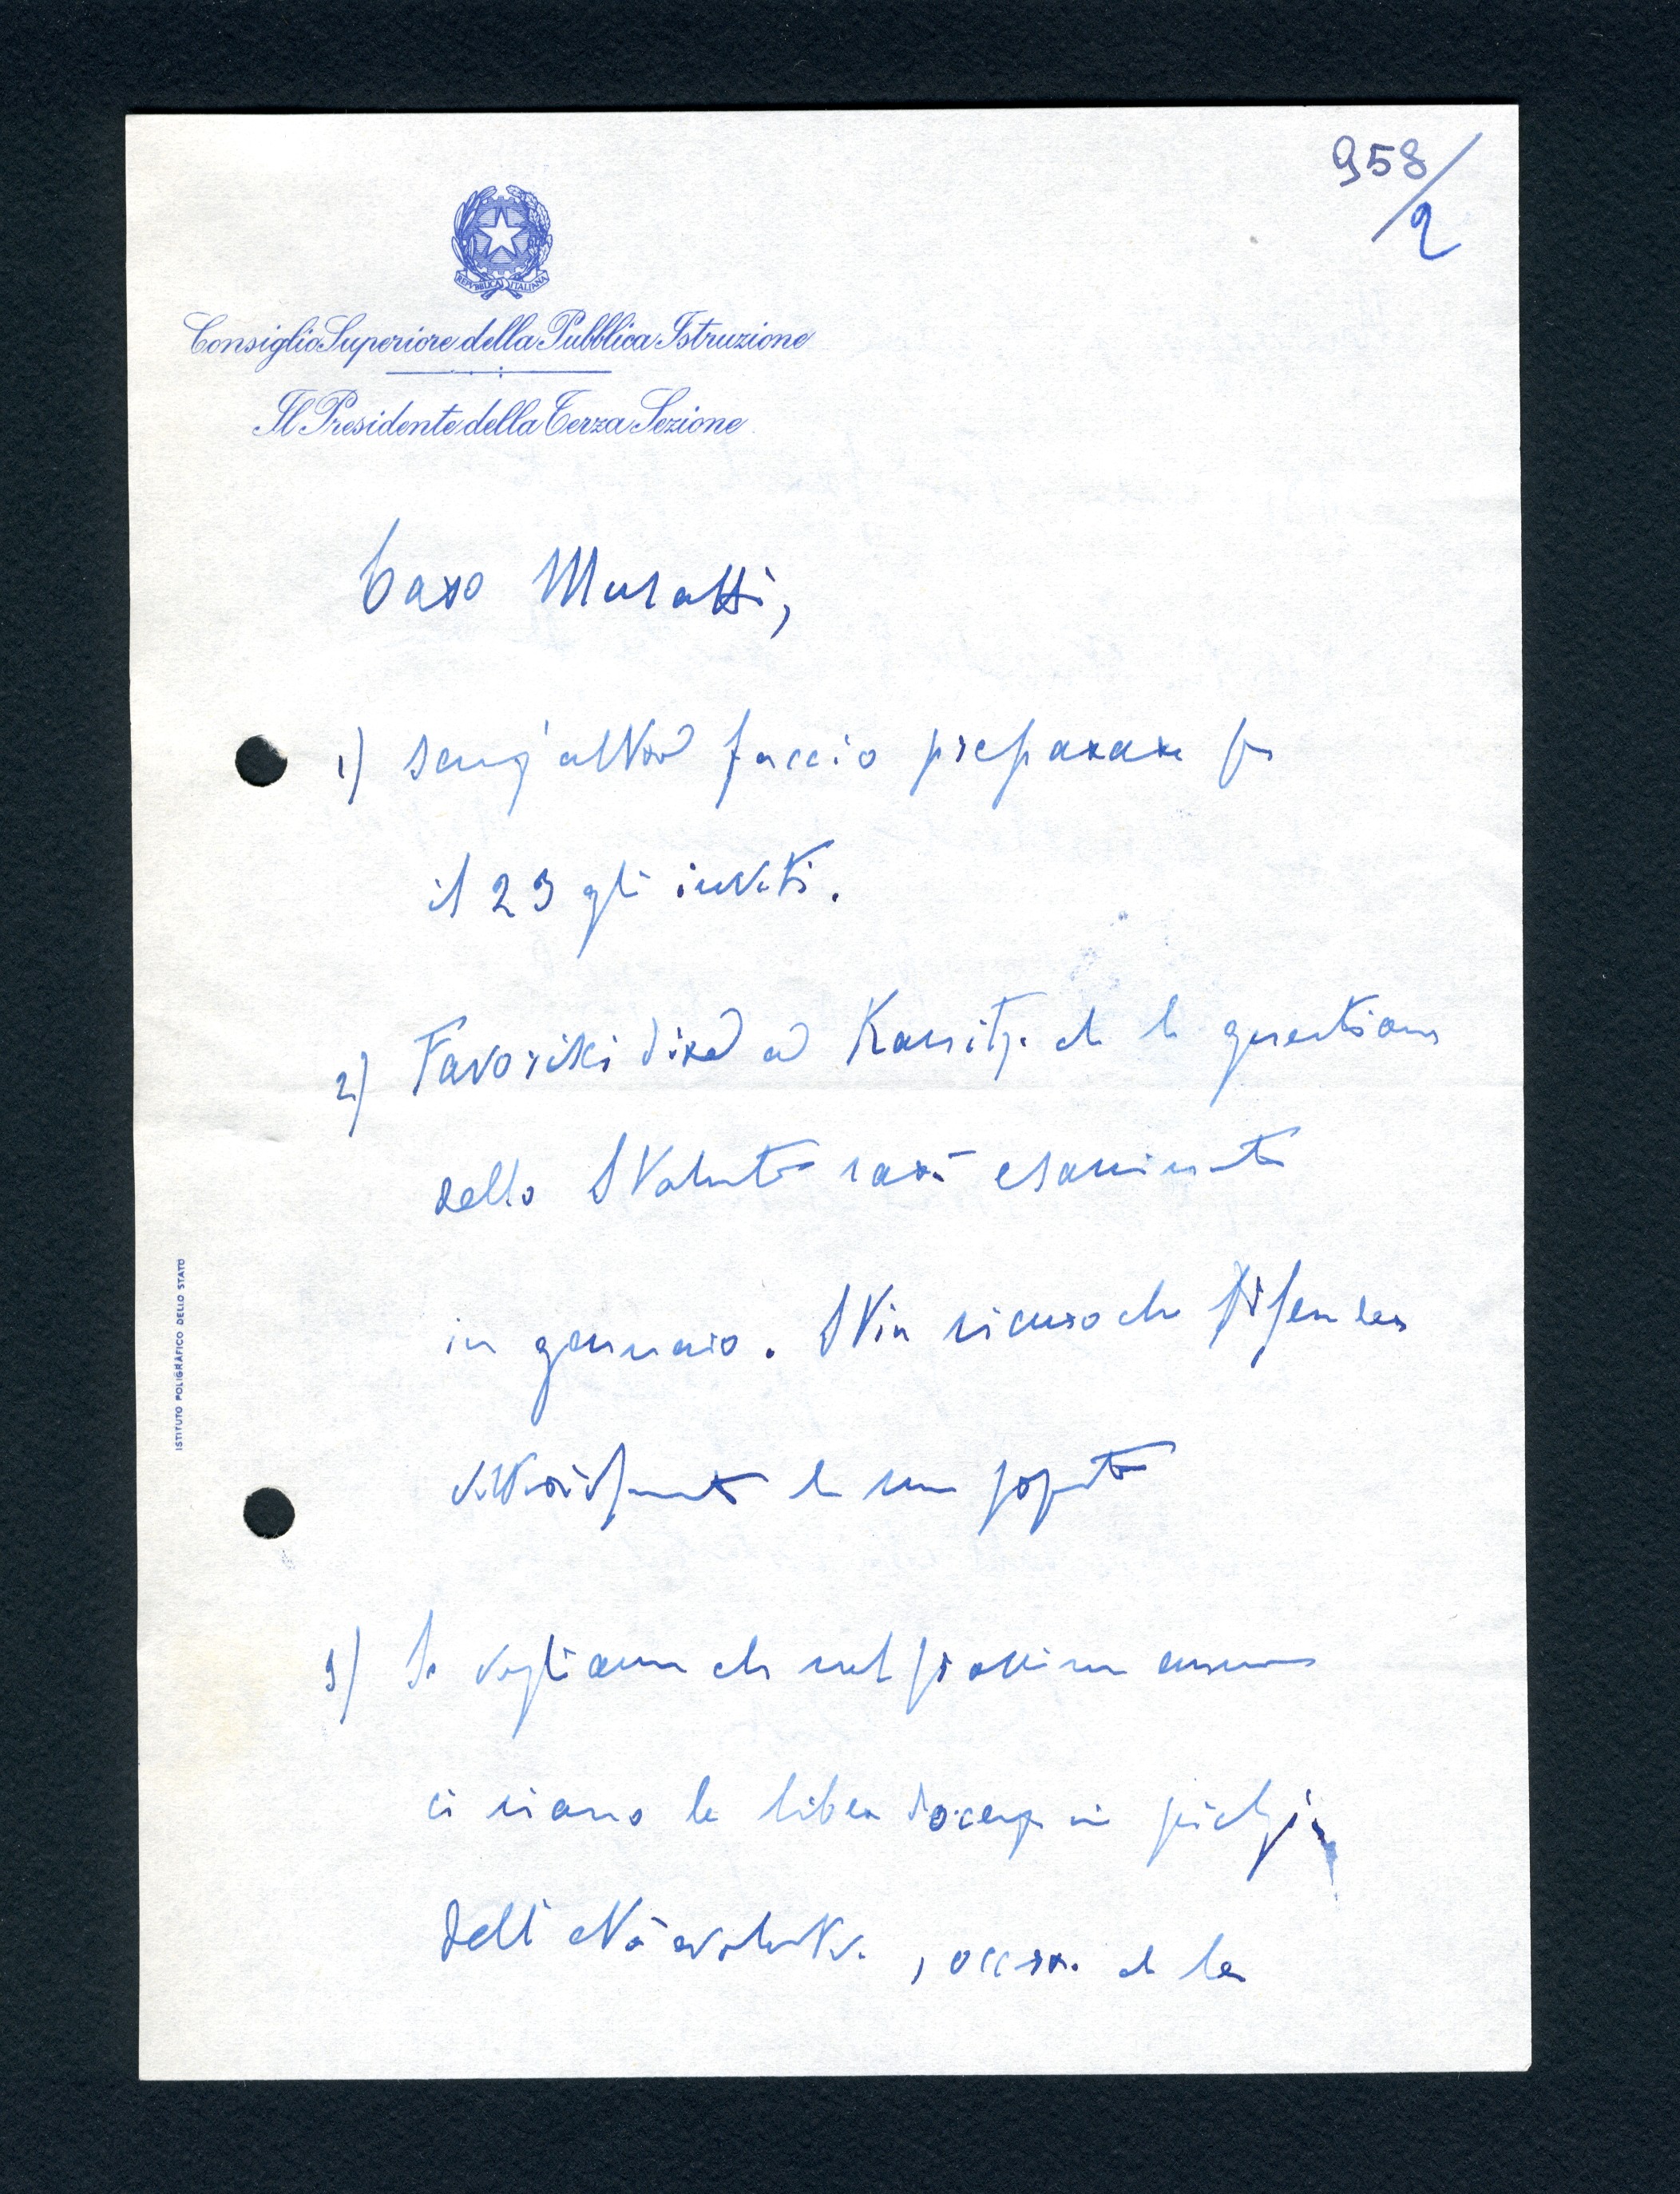 958/2
REPVBBLICA ITALIANA
Consiglio Superiore della Pubblica Istruzione
Il Presidente della Terza Sezione
Caro Muratti,
1) senz'altro faccio preparare per
il 23 gli inviti.
2) Favorisci dire a che la questione
dello Statuto sarà esaminata
in gennaio. Stia sicuro che difenderò
la sua
3) Se vogliamo che nel prossimo anno
ci siano le libere docenze in psicologia
dell'età evolutiva, occorre che la
ISTITUTO POLIGRAFICO DELLO STATO